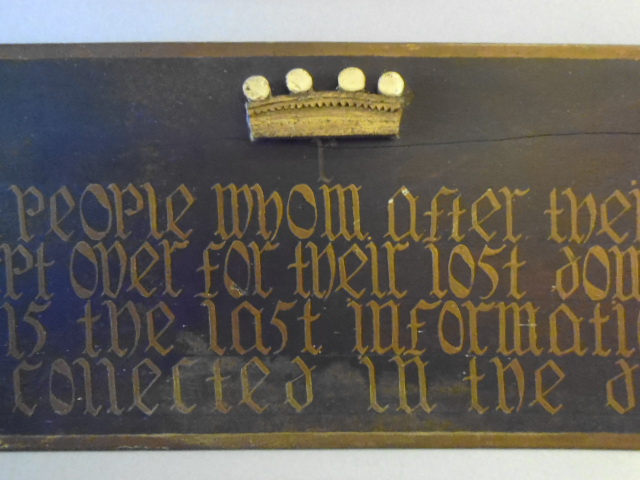 People whom after thei
pt over for their lost dow
is the last informati
collected in the d